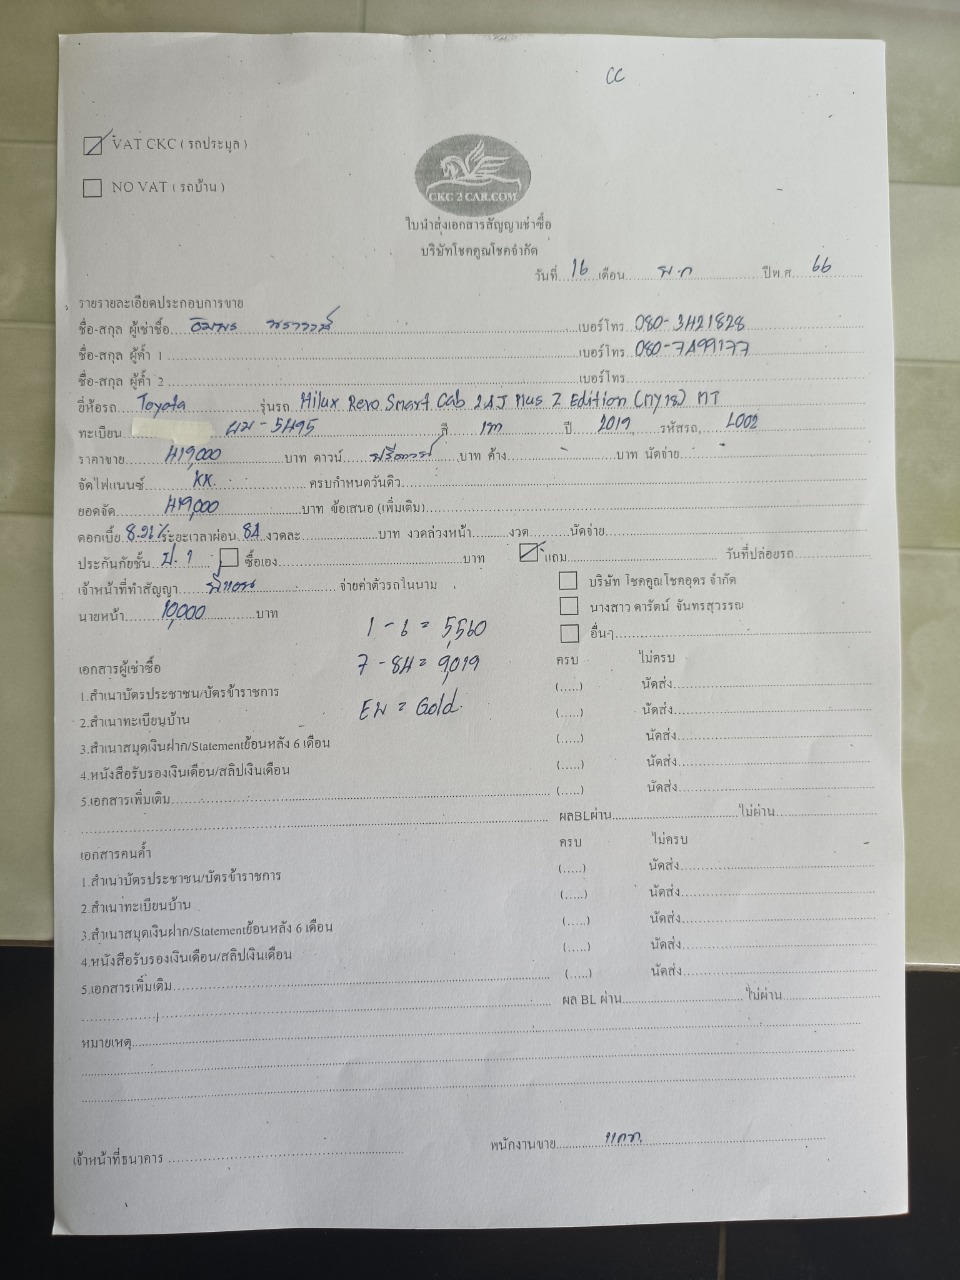 CC
VAT CKC ( รถประมูล )
NO VAT ( รถบ้าน )
CKC 2 CAR.COM
ใบนำส่งเอกสารสัญญาเช่าซื้อ
บริษัทโชคคูณโชคจำกัด
วันที่ 16 เดือน พ.ค ปีพ.ศ. 66
รายรายละเอียดประกอบการขาย
ชื่อ-สกุล ผู้เช่าซื้อ เบอร์โทร 080-3421828
ชื่อ-สกุล ผู้ค้ำ 1 เบอร์โทร 080-7499177
ชื่อ-สกุล ผู้ค้ำ 2 เบอร์โทร
ยี่ห้อรถ Toyota รุ่นรถ Hilux Revo Smart Cab 2.4J Plus Z Edition (my18) MT
ทะเบียน ผม-5495 สี เทา ปี 2019 รหัสรถ L002
ราคาขาย 419,000 บาท ดาวน์ ฟรีดาวน์ บาท ค้าง บาท นัดจ่าย
จัดไฟแนนซ์ KK. ครบกำหนดวันคิว
ยอดจัด 419,000 บาท ข้อเสนอ (เพิ่มเติม)
ดอกเบี้ย ระยะเวลาผ่อน 84 งวดละ บาท งวดล่วงหน้า งวด นัดจ่าย
ประกันภัยชั้น ป.1 ซื้อเอง บาท แถม วันที่ปล่อยรถ
เจ้าหน้าที่ทำสัญญา จ่ายค่าตัวรถในนาม บริษัท โชคคูณโชคอุดร จำกัด
นางสาว ดารัตน์ จันทรสุวรรณ
นายหน้า 10,000 บาท
อื่นๆ
1 - 6 = 5,560
7 - 84 = 9,019
= Gold.
เอกสารผู้เช่าซื้อ ครบ ไม่ครบ
1.สำเนาบัตรประชาชน/บัตรข้าราชการ (.....) นัดส่ง
2.สำเนาทะเบียนบ้าน (.....) นัดส่ง
3.สำเนาสมุดเงินฝาก/Statementย้อนหลัง 6 เดือน (.....) นัดส่ง
4.หนังสือรับรองเงินเดือน/สลิปเงินเดือน (.....) นัดส่ง
5.เอกสารเพิ่มเติม (.....) นัดส่ง
ผลBLผ่าน ไม่ผ่าน
เอกสารคนค้ำ ครบ ไม่ครบ
1.สำเนาบัตรประชาชน/บัตรข้าราชการ (.....) นัดส่ง
2.สำเนาทะเบียนบ้าน (.....) นัดส่ง
3.สำเนาสมุดเงินฝาก/Statementย้อนหลัง 6 เดือน (.....) นัดส่ง
4.หนังสือรับรองเงินเดือน/สลิปเงินเดือน (.....) นัดส่ง
5.เอกสารเพิ่มเติม (.....) นัดส่ง
ผล BL ผ่าน ไม่ผ่าน
หมายเหตุ
เจ้าหน้าที่ธนาคาร พนักงานขาย